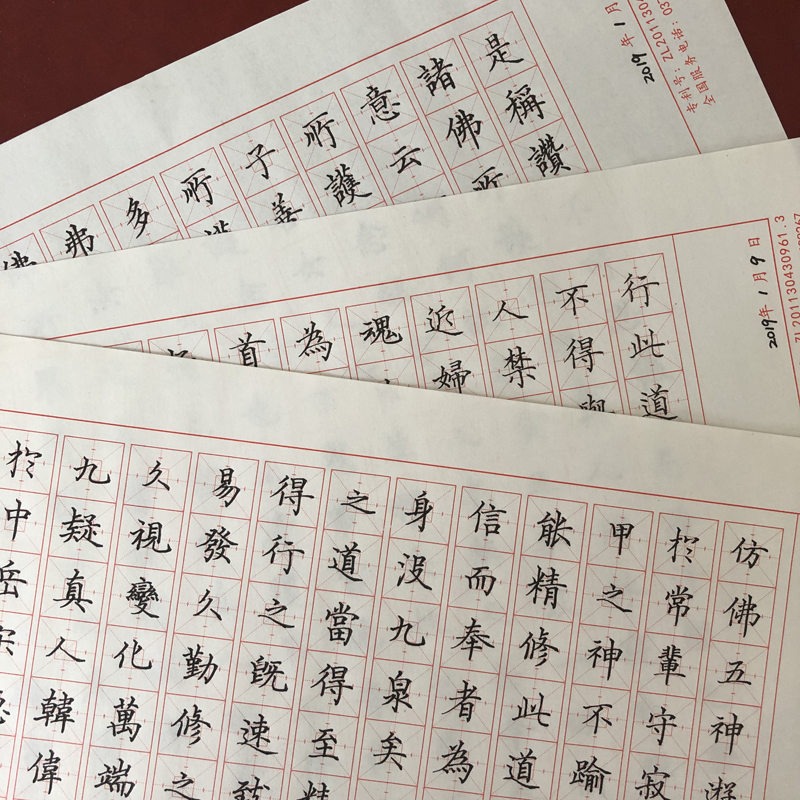 2019年1月
专利号：ZL2011304
全国服务电话：03
是稱讚
諸佛所
意云
所護
子善
所
多
弗
佛
2019年1月9日
ZL201130430961.3
行此道
不得
人禁
近婦
魂
為
首
仿佛五神
於常輩守寂
甲之神不踰
能精修此道
信而奉者為
身沒九泉矣
之道當得至精
得行之既速
易發久勤修之
久視變化萬端
九疑真人韓偉
於中岳宋